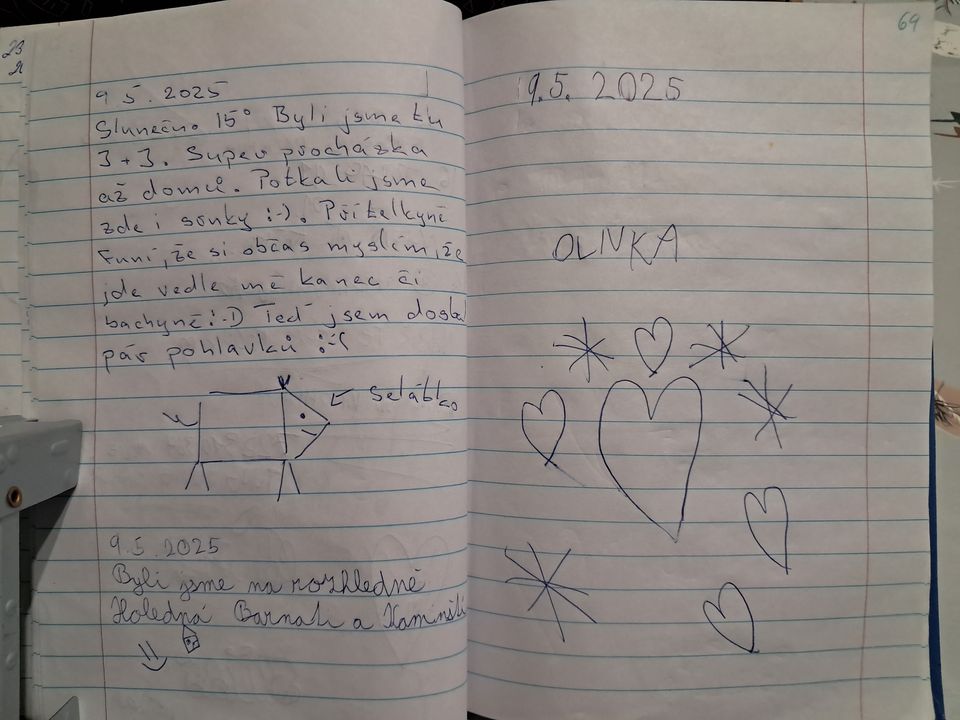 9 5. 2025
Slunečno 15° Byli jsme tu
3+3. Super procházka
až domů. Potkali jsme
zde i srnky :-). Přítelkyně
Funí, že si občas myslím, že
jde vedle mě kanec či
bachyně! :-D Teď jsem dostal
pár pohlavků :-(
Selátko
9.5.2025
Byli jsme na rozhledně
Holedná Barnab a
23
69
9.5. 2025
OLIVKA